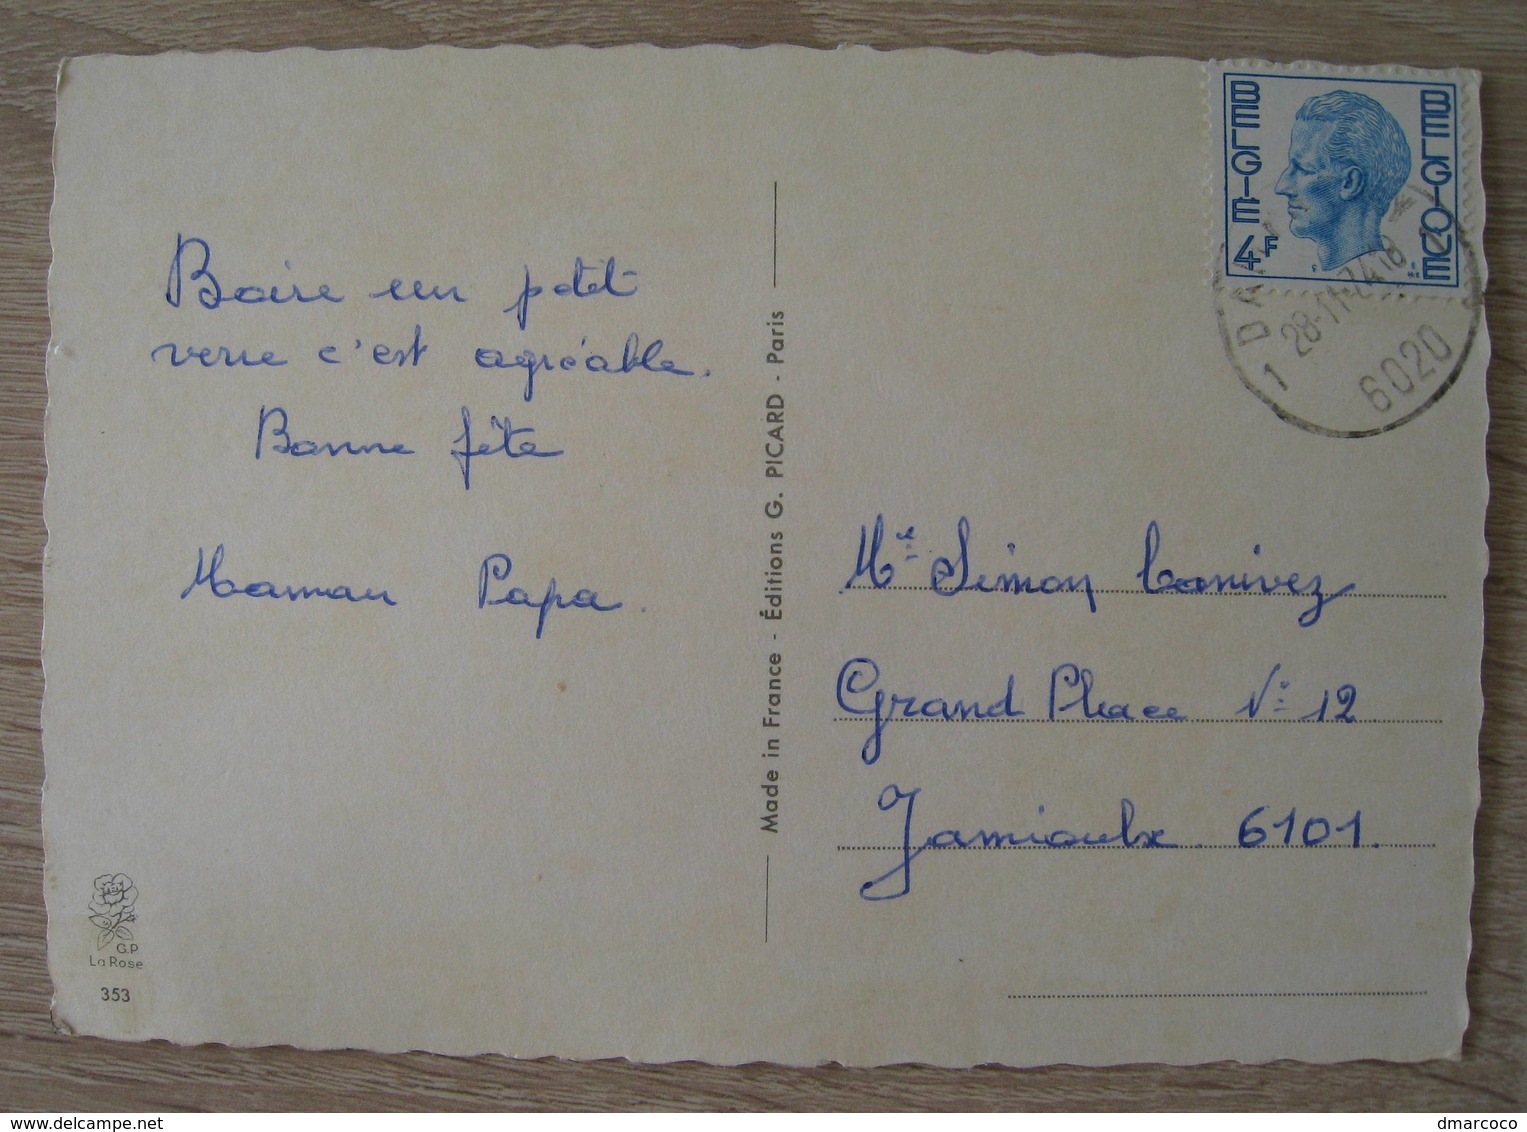 Boire un petit
verre c'est agréable.
Bonne fête
Maman Papa.
G.P
La Rose
353
Made in France - Éditions G. PICARD - Paris
BELGIE 4F BELGIQUE
1 DA
28-11-74 18
6020
Mr Simon Canivez
Grand Place N° 12
Jamioulx 6101.
delcampe.net
dmarcoco